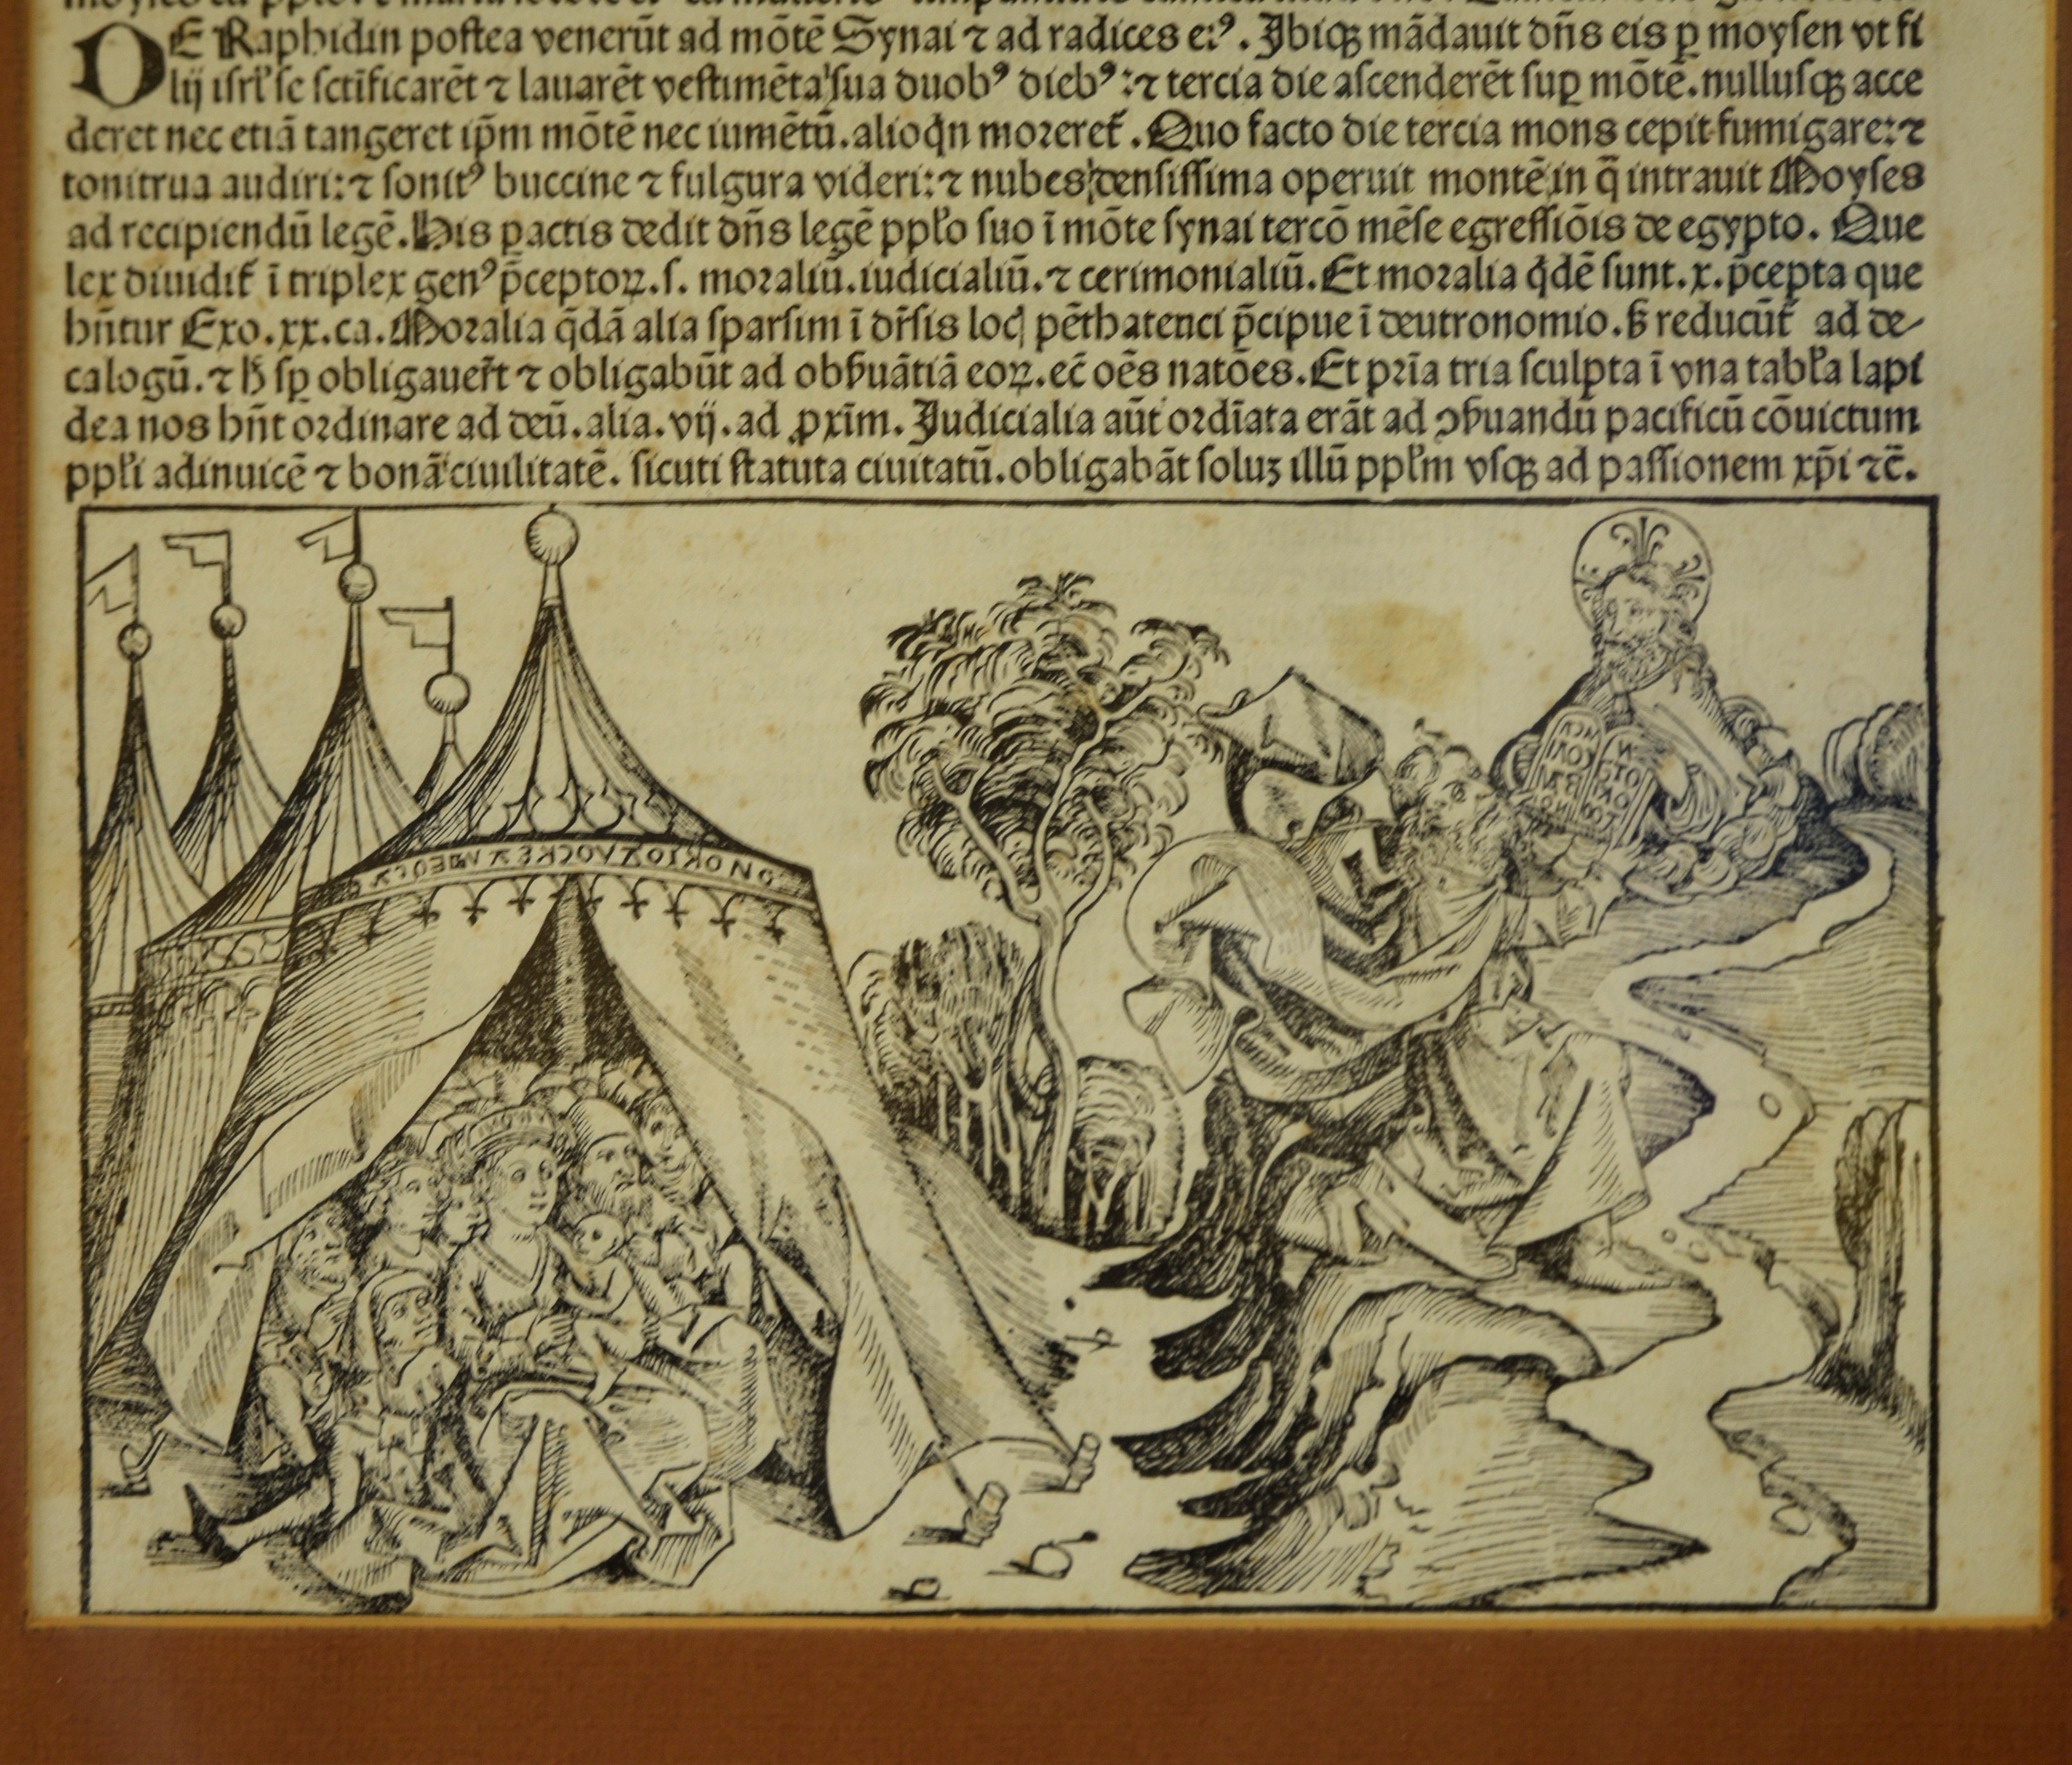 DE Raphidin postea venerūt ad mōtē Synai ⁊ ad radices eiꝰ. Ibiqꝫ mādauit dn̄s eis ꝑ moysen vt fi
lij isrl̓ se sctīficarēt ⁊ lauarēt vestimēta sua duobꝰ diebꝰ:⁊ tercia die ascenderēt suꝑ mōtē.nullusqꝫ acce
deret nec etiā tangeret ip̄m mōtē nec iumētū.alioqn̄ moreret̄. Quo facto die tercia mons cepit fumigare:⁊
tonitrua audiri:⁊ sonitꝰ buccine ⁊ fulgura videri:⁊ nubes densissima operuit montē in q̄ intrauit Moyses
ad recipiendū legē.His pactis dedit dn̄s legē ppl̓o suo ī mōte synai tercō mēse egressiōis de egypto. Que
lex diuidit̄ ī triplex genꝰ p̄ceptoꝝ.s. moraliū.iudicialiū.⁊ cerimonialiū.Et moralia qd̄ē sunt.x.p̄cepta que
hn̄tur Exo.xx.ca.Moralia q̄dā alia sparsim ī dr̄sis locꝭ pētbatenci p̄cipue ī deutronomio.ß reducūt̄ ad de-
calogū.⁊ ħ sꝑ obligauer̄t ⁊ obligabūt ad obẜuātiā eoꝝ.ec̄ oēs natōes.Et pr̄ia tria sculpta ī vna tabl̓a lapi
dea nos hn̄t ordinare ad deū.alia.vij.ad ꝓxīm. Iudicialia aūt ordīata erāt ad ꝯẜuandū pacificū cōuictum
ppl̓i adinuicē ⁊ bonā ciuilitatē. sicuti statuta ciuitatū.obligabāt soluꝫ illū ppl̓m vsqꝫ ad passionem xp̄i ⁊c̄.